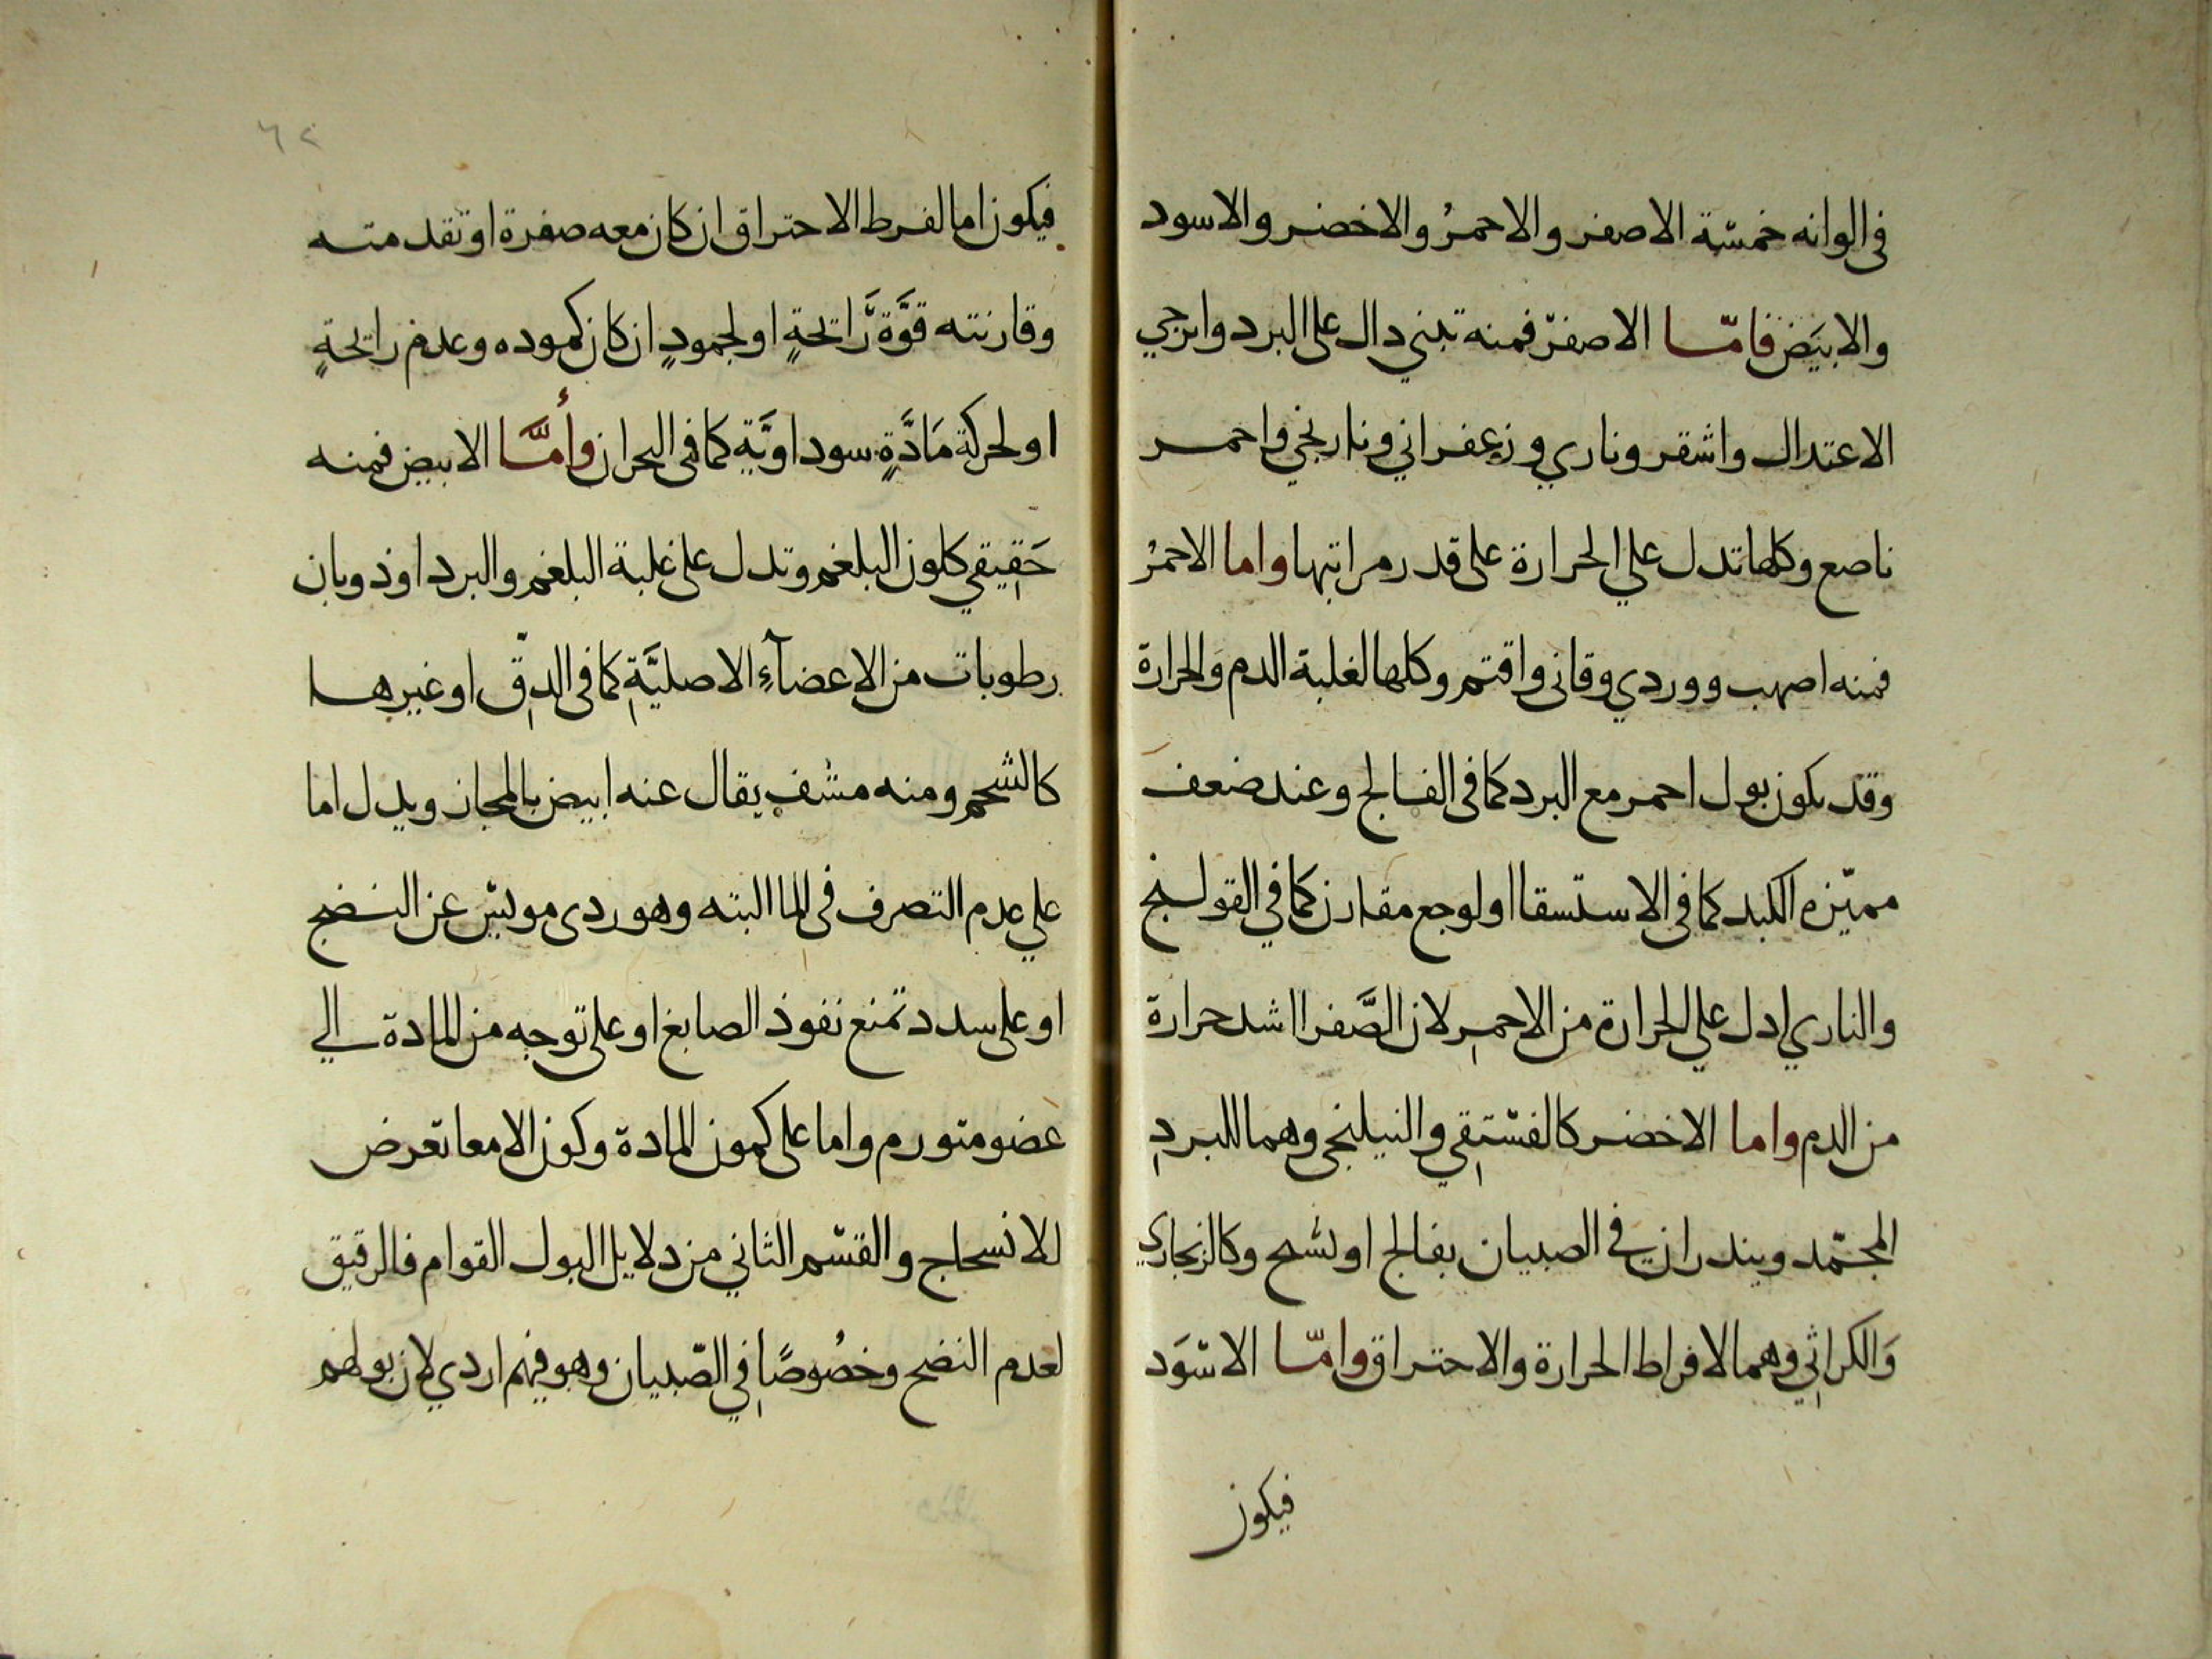 في الوانه خمسة الاصفر والاحمرُ والاخضر والاسود
والابيَض فامّا الاصفرّ فمنه تبني دال على البرد واترجي
الاعتدال واشقر وناري وزعفراني ونارنجي واحمر
ناصع وكلها تدل علي الحرارة على قدر مراتبها واما الاحمرُ
فمنه اصهب ووردي وقاني واقتم وكلها لغلبة الدم والحرارة
وقد يكون بول احمر مع البرد كما في الفالج وعند ضعف
مميّزه الكبد كما في الاستسقا او لوجع مقارن كما في القولنج
والناري ادل علي الحرارة من الاحمرِ لان الصَّفرا اشد حرارة
من الدم واما الاخضر كالفسْتِقي والنيلنجي وهما للبردِ
المجمّد وينذران في الصبيان بفالج او تشنج وكالزنجاري
وَالكراثي وهما لافراط الحرارة والاحتراق وامّا الاسْوَد
فيكون
٦٢
فيكون اما لفرط الاحتراق ان كان معه صفرة او تقدمته
وقارنته قوَّة رَّايحةٍ او لجمودٍ ان كان كموده وعدم رايحةٍ
او لحركة مَادَّةٍ سوداويَّة كما في البحران وأمَّا الابيض فمنه
حَقِيقي كلون البلغم وتدل على غلبة البلغم والبرد او ذوبان
رطوبات من الاعضآءِ الاصليَّةِ كما في الدِق او غيرها
كالشحم ومنه مشف يقال عنه ابيض بالمجاز ويدل اما
علي عدم التصرف في الما البته وهو ردي مويس عن النضج
او على سدد تمنع نفوذ الصابغ او على توجه من المادة الي
عضو متورم واما على كمون المادة وكون الامعا تعرض
للانسحاج والقسْم الثاني من دلايل البول القوام فالرقيق
لعدم النضج وخصُوصًا في الصّبيان وهو فيهم اردي لان بولهم